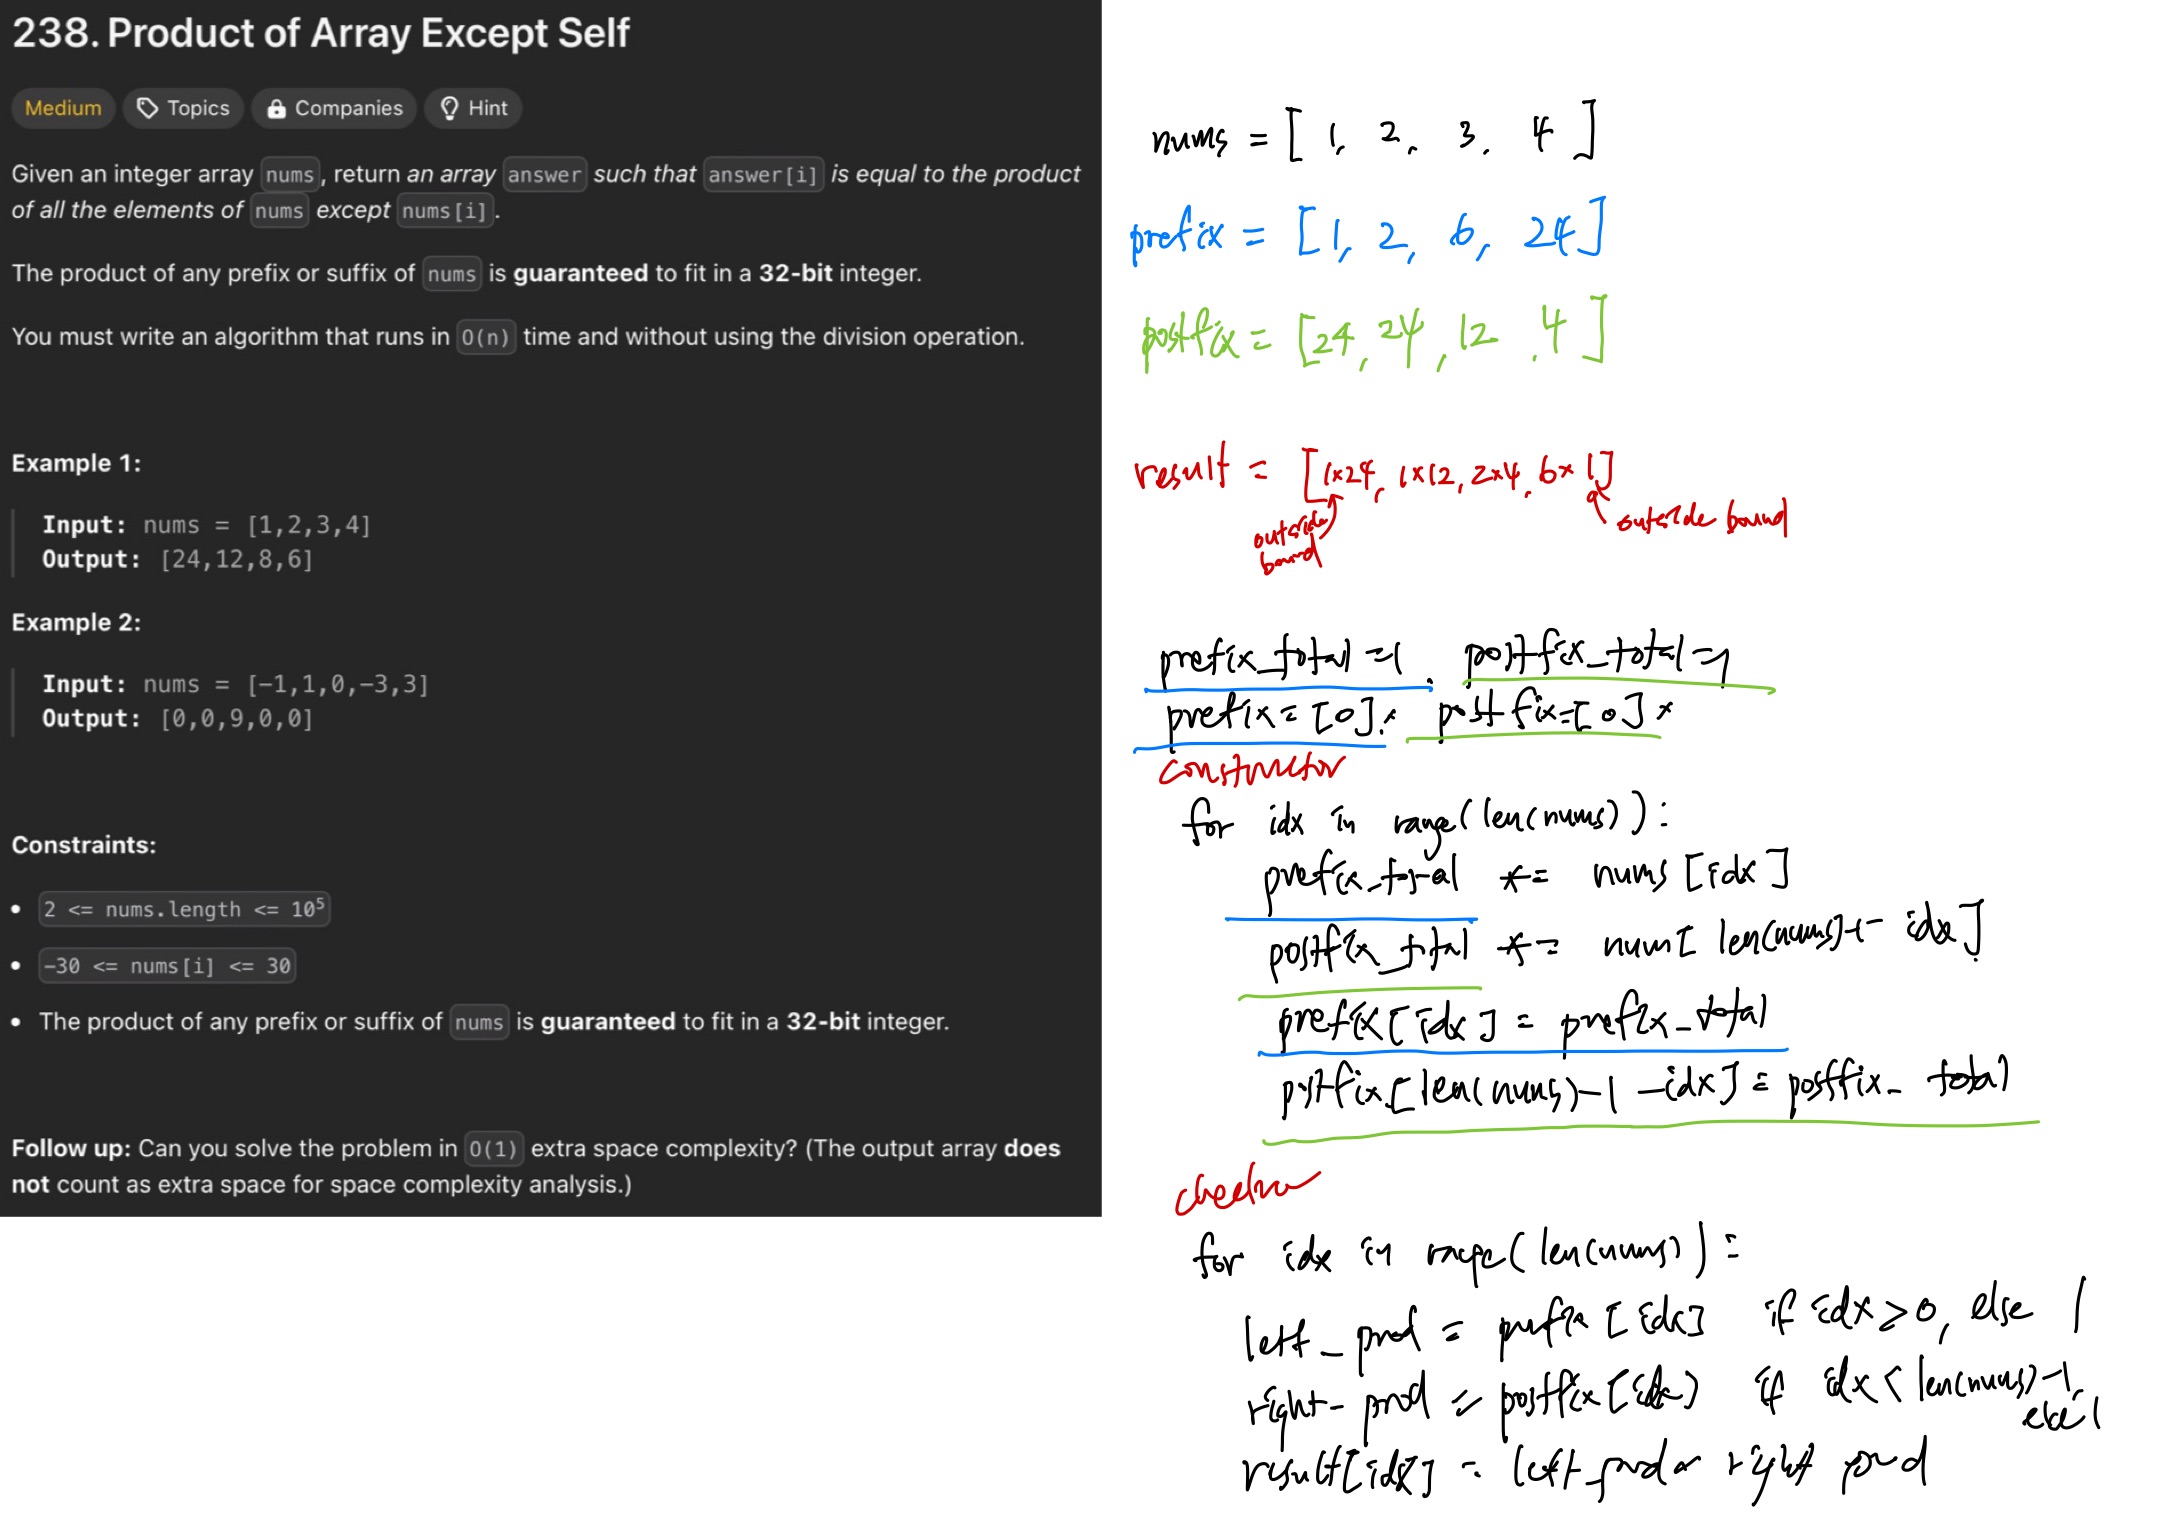 238. Product of Array Except Self
Medium Topics Companies Hint
Given an integer array nums, return an array answer such that answer[i] is equal to the product
of all the elements of nums except nums[i].
The product of any prefix or suffix of nums is guaranteed to fit in a 32-bit integer.
You must write an algorithm that runs in O(n) time and without using the division operation.
Example 1:
Input: nums = [1,2,3,4]
Output: [24,12,8,6]
Example 2:
Input: nums = [-1,1,0,-3,3]
Output: [0,0,9,0,0]
Constraints:
• 2 <= nums.length <= 10⁵
• -30 <= nums[i] <= 30
• The product of any prefix or suffix of nums is guaranteed to fit in a 32-bit integer.
Follow up: Can you solve the problem in O(1) extra space complexity? (The output array does
not count as extra space for space complexity analysis.)
nums = [ 1, 2, 3, 4 ]
prefix = [1, 2, 6, 24]
postfix = [24, 24, 12, 4]
result = [1×24, 1×12, 2×4, 6×1]
outside
bound
outside bound
prefix_total =1, postfix_total =1
prefix = [0]* postfix=[0]*
constructor
for idx in range(len(nums)):
prefix_total *= nums [idx]
postfix_total *= num[ len(nums)-1- idx]
prefix[idx] = prefix_total
postfix[len(nums)-1-idx] = postfix_total
for idx in range(len(nums)):
left_prod = prefix [idx] if idx > 0, else 1
right_prod = postfix[idx] if idx < len(nums)-1,
else 1
result[idx] = left_prod * right prod